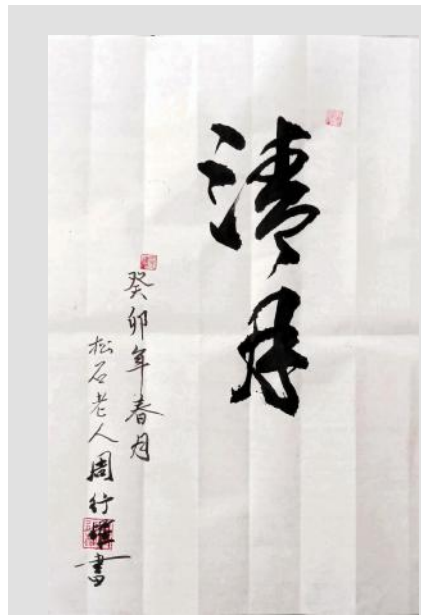 清月
癸卯年春月
松石老人周行
書